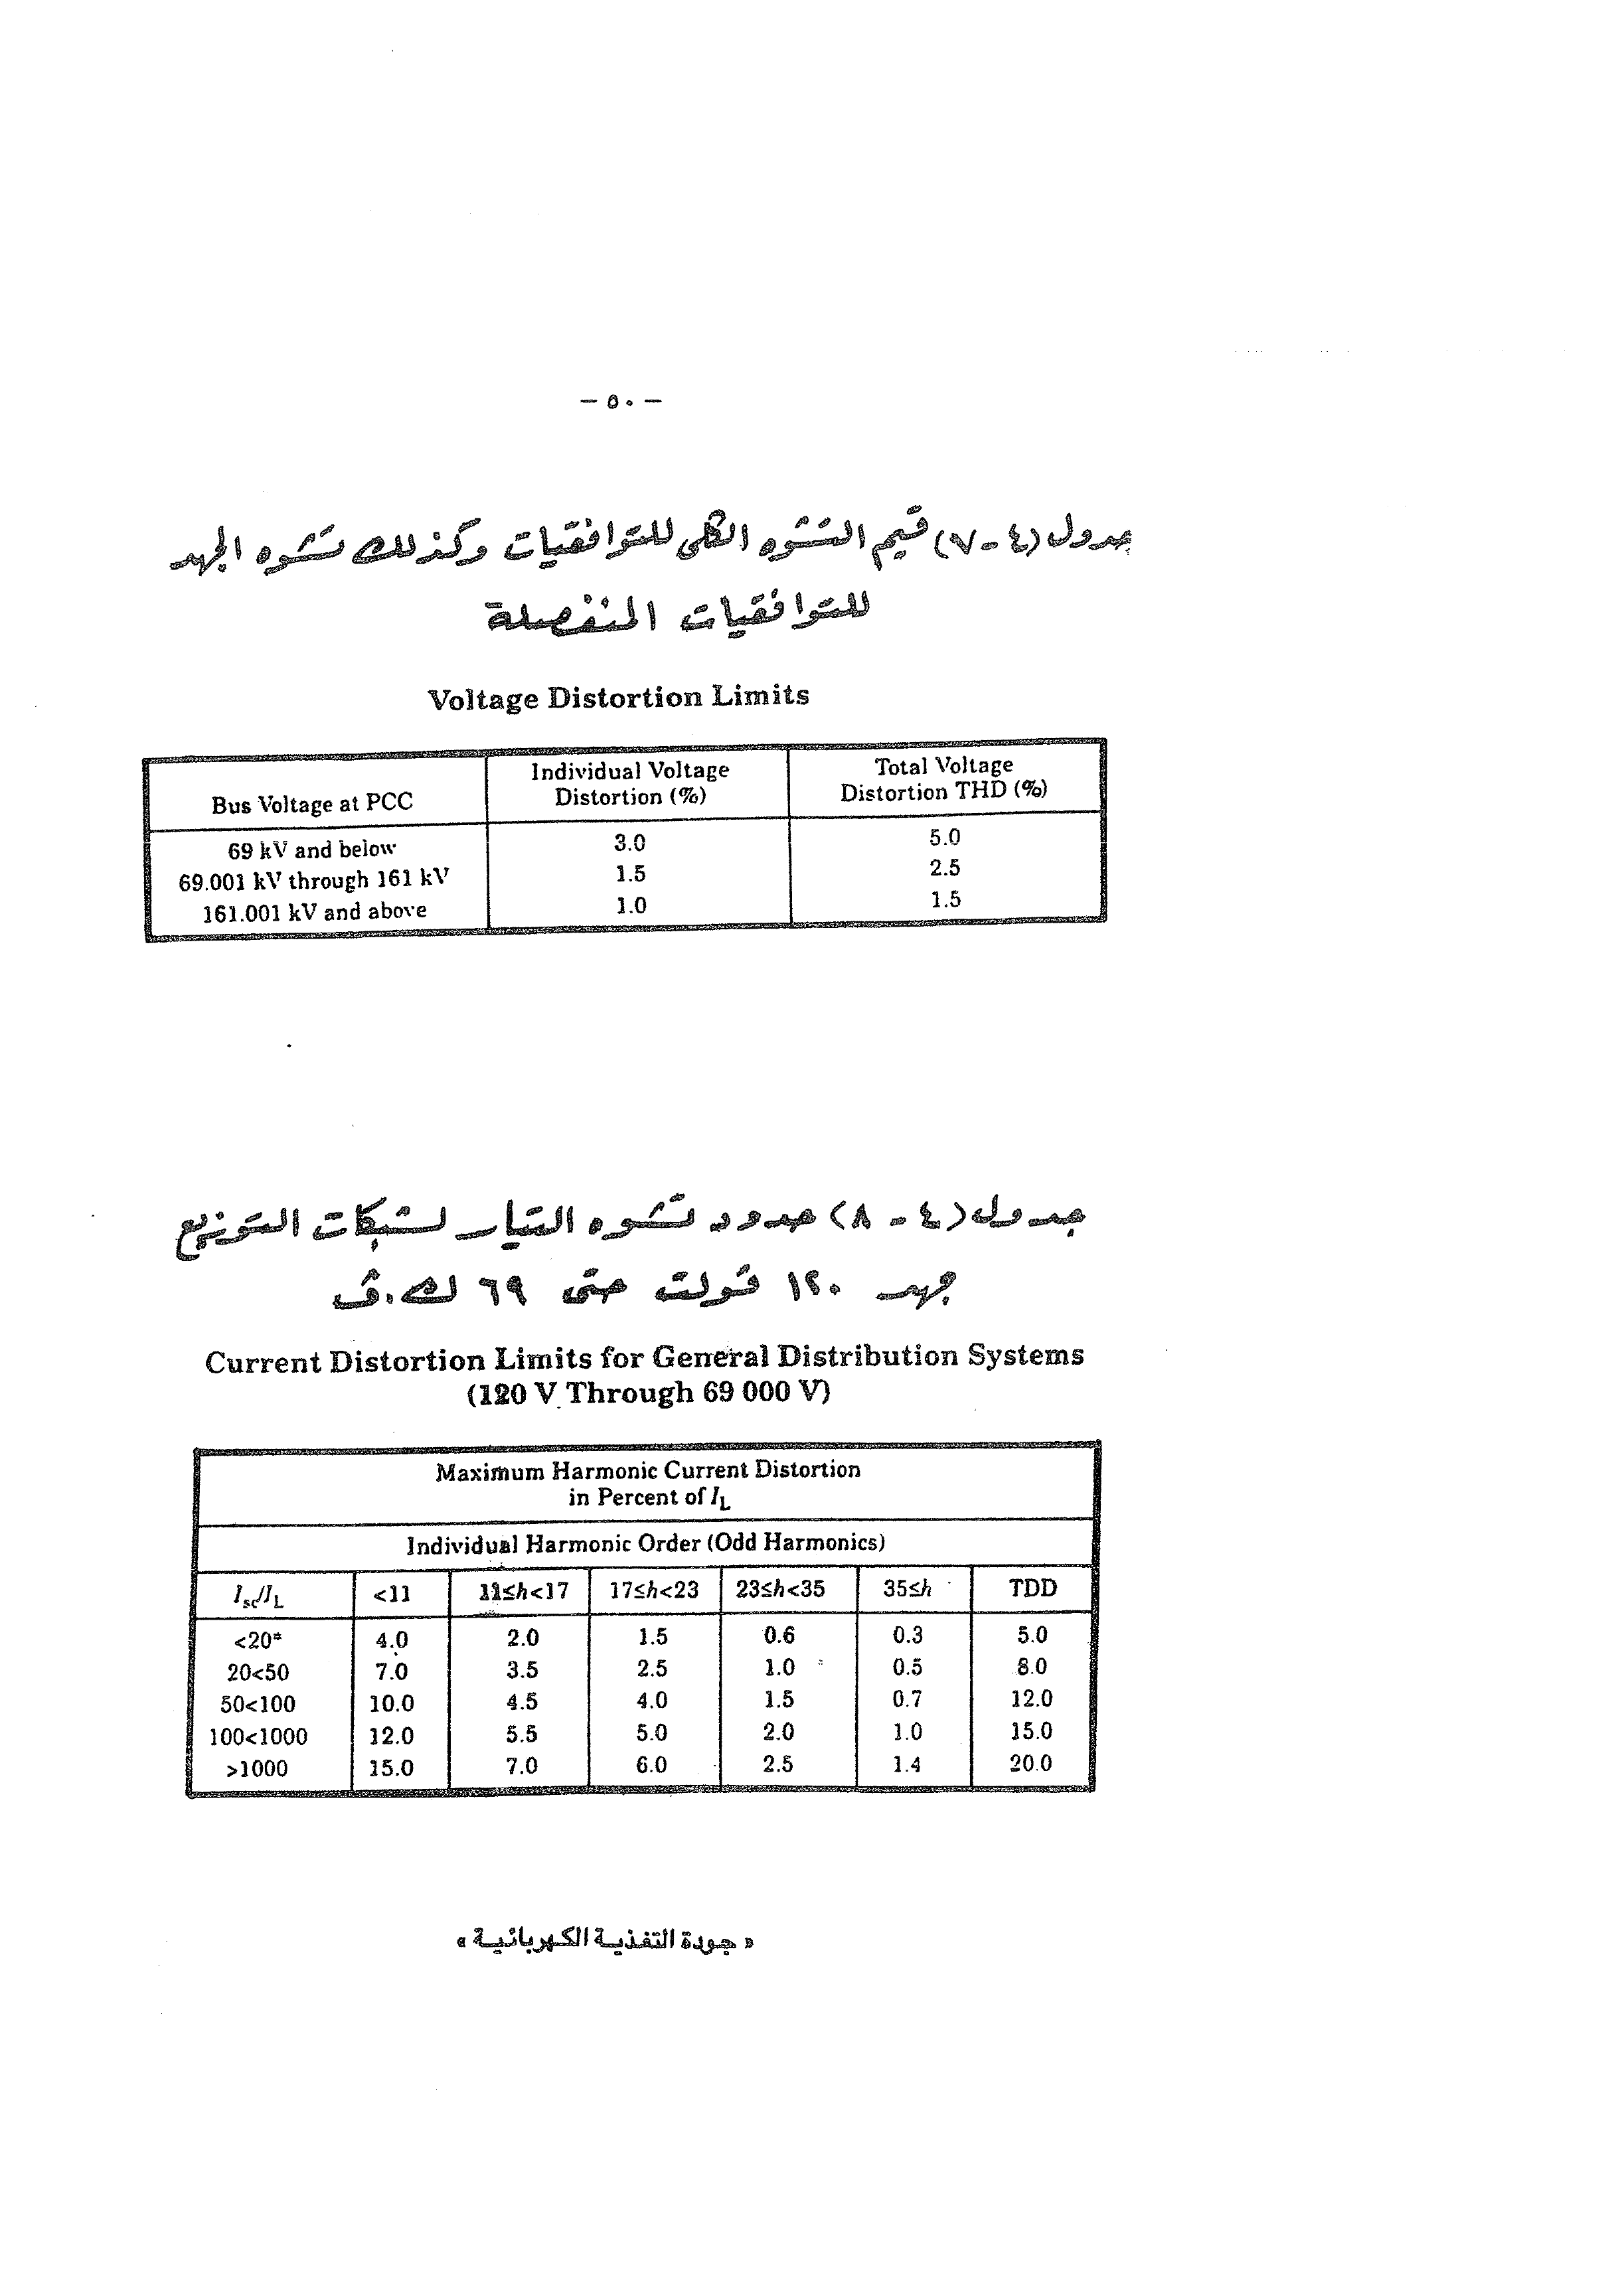 - ٥٠ -
جدول (٤-٧) قيم التشوه الكلى للتوافقيات وكذلك تشوه الجهد
للتوافقيات المنفصلة
Voltage Distortion Limits
Bus Voltage at PCC Individual Voltage Distortion (%) Total Voltage Distortion THD (%)
69 kV and below 3.0 5.0
69.001 kV through 161 kV 1.5 2.5
161.001 kV and above 1.0 1.5
جدول (٤-٨) حدود تشوه التيار لشبكات التوزيع
جهد ١٢٠ ڤولت حتى ٦٩ ك.ڤ
Current Distortion Limits for General Distribution Systems
(120 V Through 69 000 V)
Maximum Harmonic Current Distortion
in Percent of IL
Individual Harmonic Order (Odd Harmonics)
Isc/IL <11 11≤h<17 17≤h<23 23≤h<35 35≤h TDD
<20* 4.0 2.0 1.5 0.6 0.3 5.0
20<50 7.0 3.5 2.5 1.0 0.5 8.0
50<100 10.0 4.5 4.0 1.5 0.7 12.0
100<1000 12.0 5.5 5.0 2.0 1.0 15.0
>1000 15.0 7.0 6.0 2.5 1.4 20.0
« جودة التغذية الكهربائية »